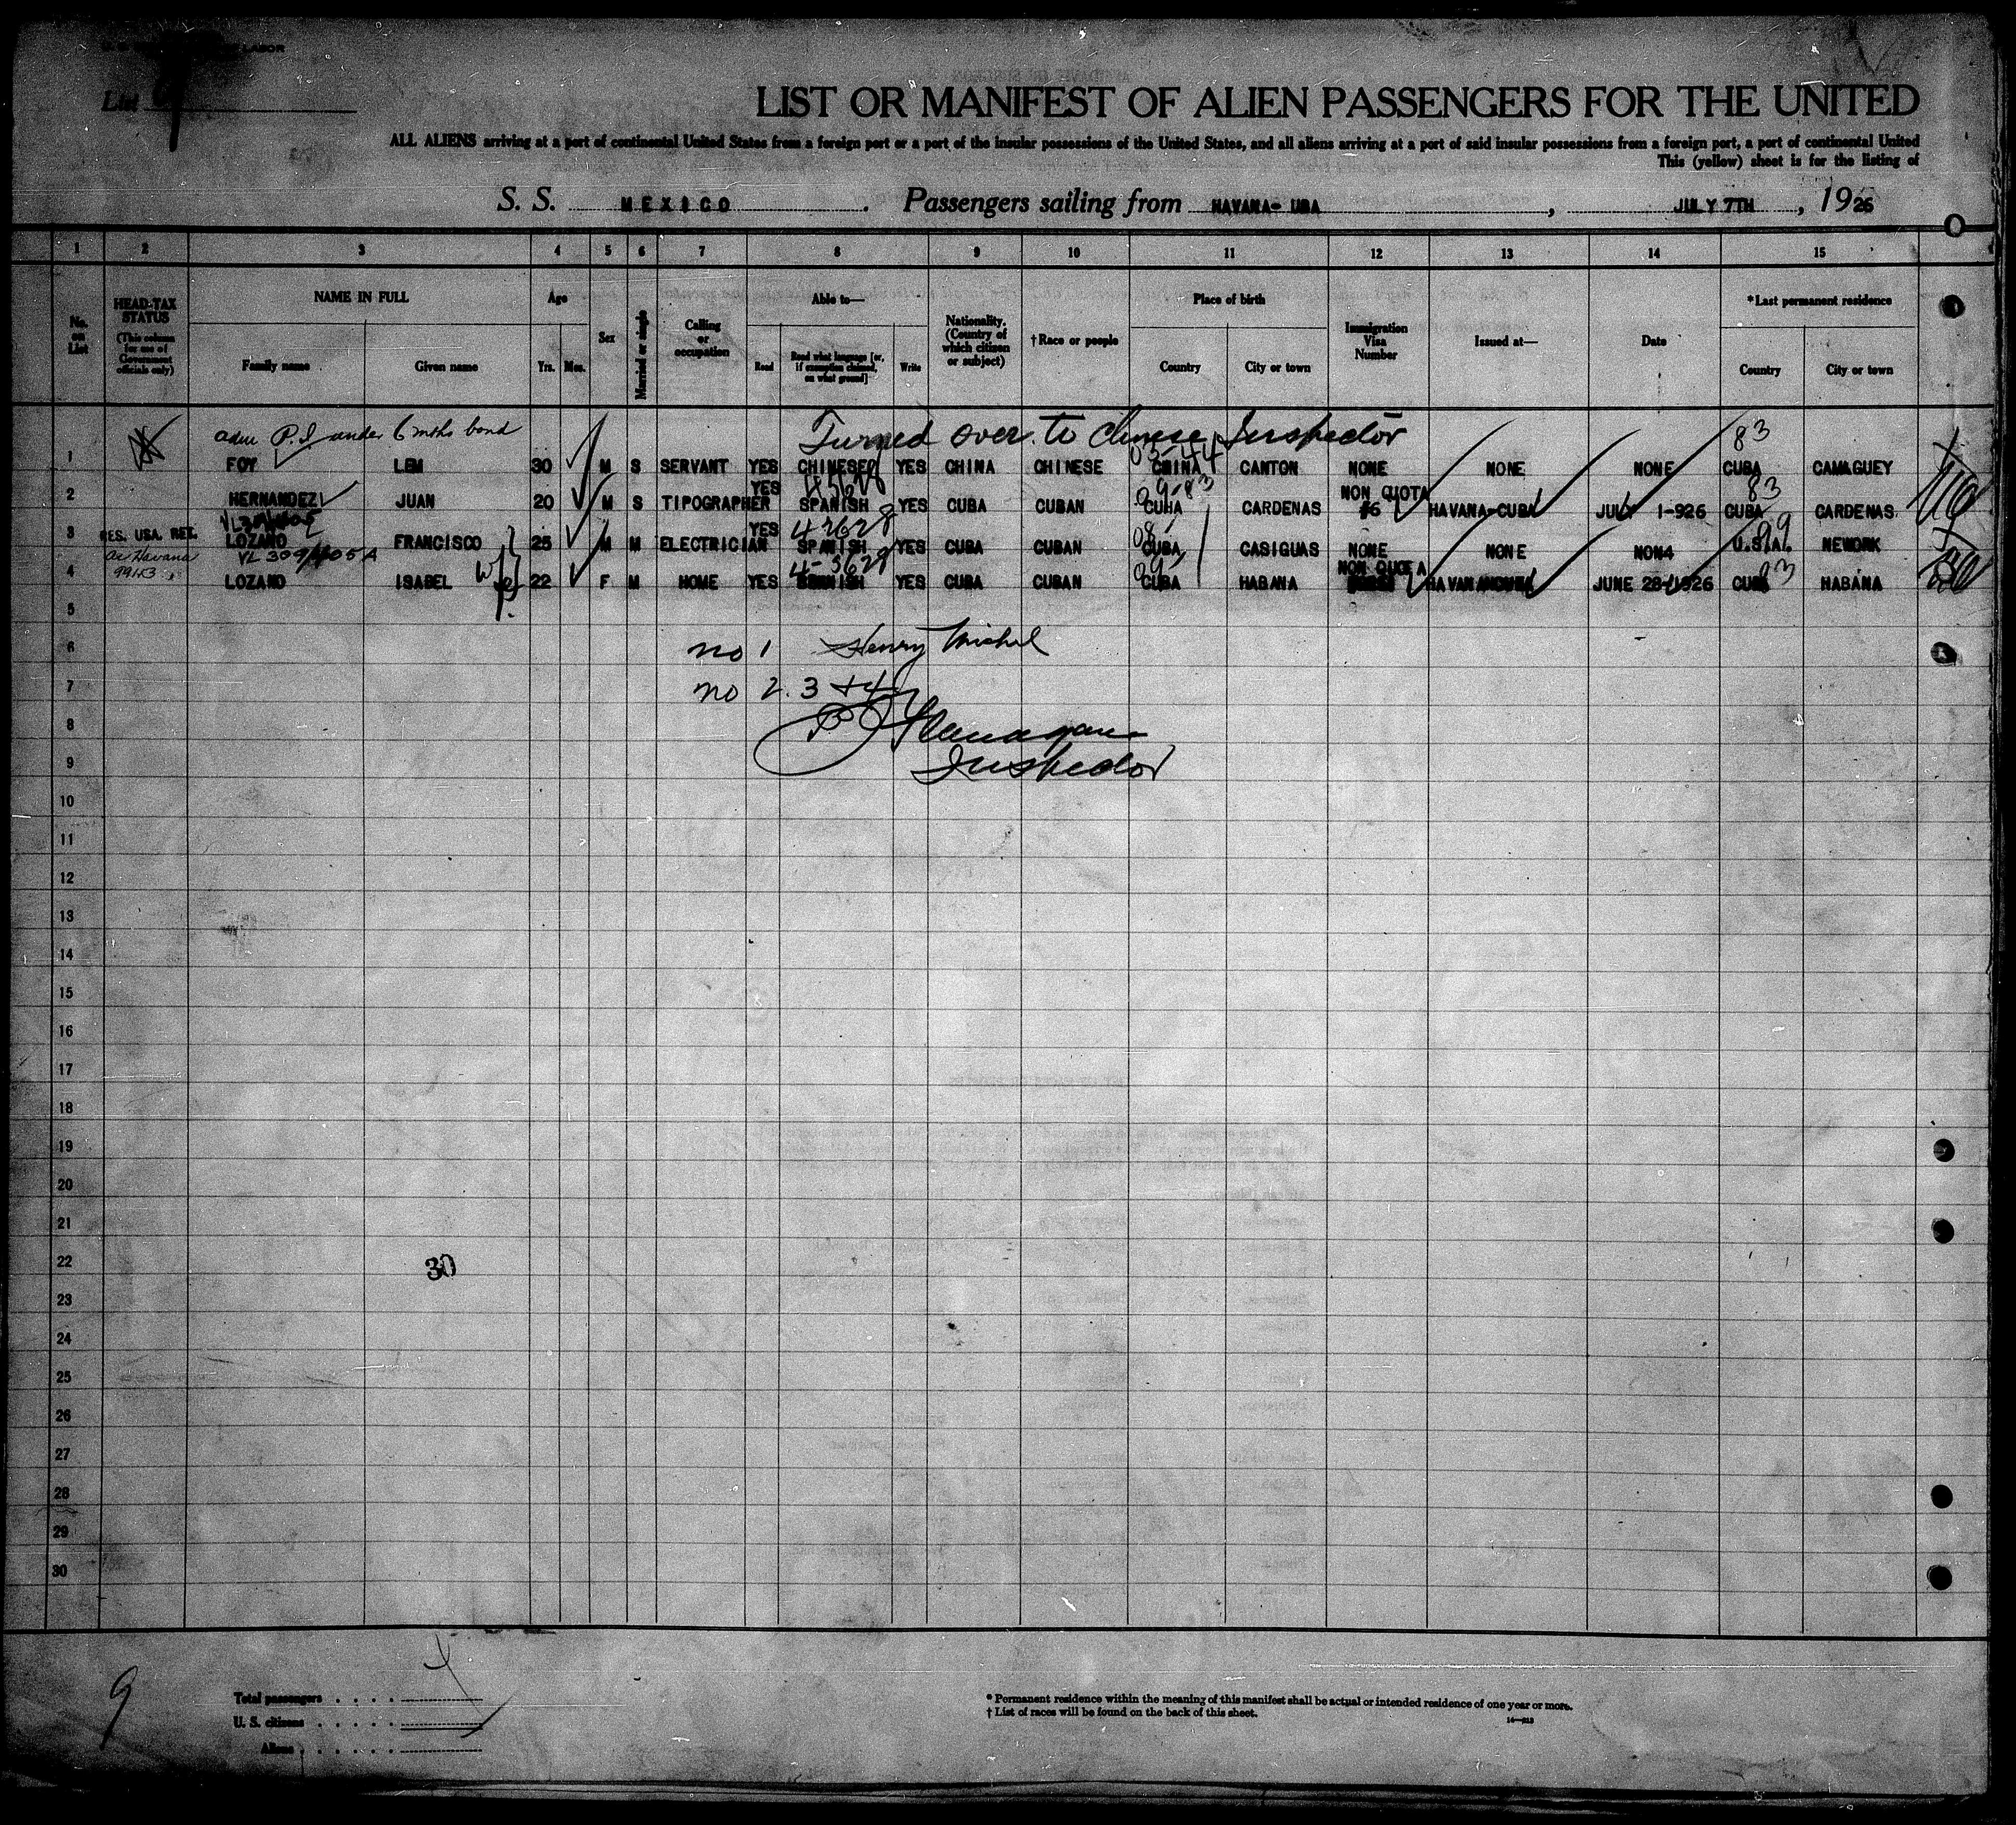 LABOR
List 9
LIST OR MANIFEST OF ALIEN PASSENGERS FOR THE UNITED
ALL ALIENS arriving at a port of continental United States from a foreign port or a port of the insular possessions of the United States, and all aliens arriving at a port of said insular possessions from a foreign port, a port of continental United
This (yellow) sheet is for the listing of
S. S. MEXICO. Passengers sailing from HAVANA- UBA, JULY 7TH, 1926
1 2 3 4 5 6 7 8 9 10 11 12 13 14 15
No. on List
HEAD-TAX STATUS (This column for use of Government officials only)
NAME IN FULL
Family name
Given name
Age
Yrs. Mos.
Sex
Married or single
Calling or occupation
Able to—
Read
Read what language [or, if exemption claimed, on what ground]
Write
Nationality. (Country of which citizen or subject)
†Race or people
Place of birth
Country
City or town
Immigration Visa Number
Issued at—
Date
*Last permanent residence
Country
City or town
adm P.I. under 6 mths bond Turned over to Chinese Inspector 83
1 FOY LEM 30 M S SERVANT YES CHINESE YES CHINA CHINESE CHINA CANTON NONE NONE NONE CUBA CAMAGUEY
2 HERNANDEZ JUAN 20 M S TIPOGRAPHER YES SPANISH YES CUBA CUBAN CUHA CARDENAS NON QUOTA #6 HAVANA-CUBA JULY 1-926 CUBA 83 CARDENAS
3 RES. USA. RET. LOZANO FRANCISCO 25 M M ELECTRICIAN YES SPANISH YES CUBA CUBAN CUBA CASIGUAS NONE NONE NON4 U.S.A. 99 NEWORK
VL 309/405 A
4 LOZANO ISABEL 22 F M HOME YES SPANISH YES CUBA CUBAN CUBA HABANA NON QUOTA JUNE 28-1926 CUBA HABANA
5
6 no 1 Henry Michel
7 no 2. 3 +4
8 P J Flanagan
9 Inspector
10
11
12
13
14
15
16
17
18
19
20
21
22 30
23
24
25
26
27
28
29
30
9
Total passengers
U. S. citizens
Aliens
* Permanent residence within the meaning of this manifest shall be actual or intended residence of one year or more.
† List of races will be found on the back of this sheet.